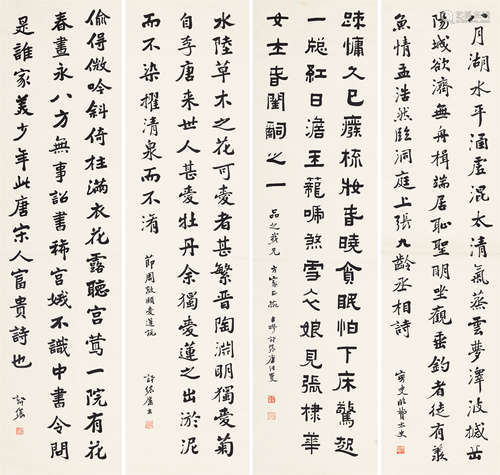 八月湖水平涵虛混太清氣蒸雲夢澤波撼岳
陽城欲濟無舟楫端居恥聖明坐觀垂釣者徒有羨
魚情孟浩然臨洞庭上張九齡丞相詩
疎慵久已廢梳妝春曉貪眠怕下床驚起
一牕紅日澹玉籠嚇煞雪衣娘見張棣華
女士春閨詞之一
水陸草木之花可愛者甚繁晉陶淵明獨愛菊
自李唐来世人甚愛牡丹余獨愛蓮之出淤泥
而不染擢清泉而不淯
節周敦頤愛蓮說
偷得微吟斜倚柱滿衣花露聽宮鶯一院有花
春晝永八方無事詔書稀宮娥不識中書令問
是誰家美少年此唐宋人富貴詩也